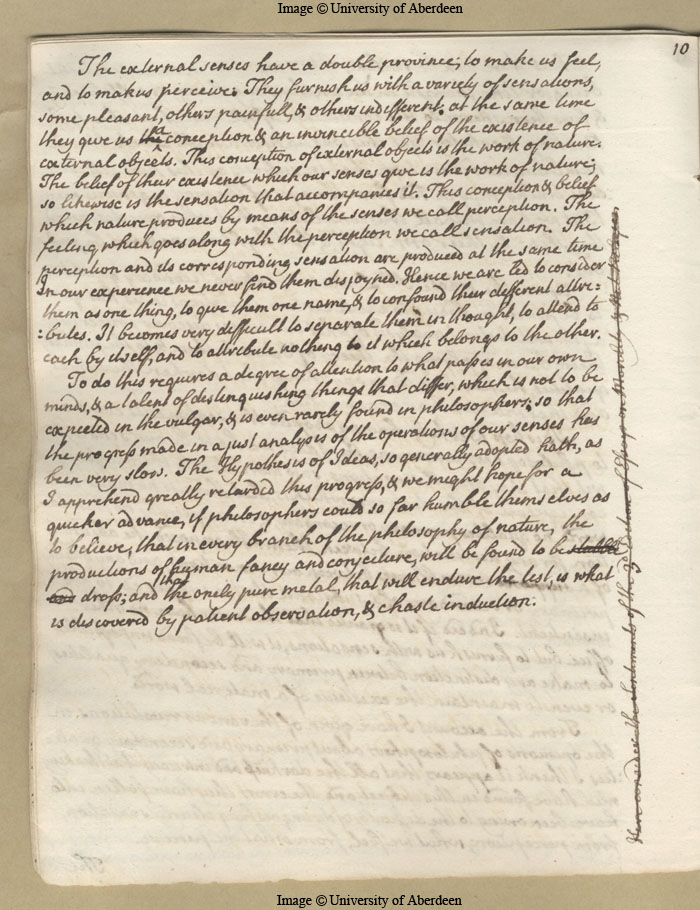 Image © University of Aberdeen
10
The external senses have a double province; to make us feel,
and to make us perceive. They furnish us with a variety of sensations,
some pleasant, others painfull, & others indifferent; at the same time
they give us the a conception & an invincible belief of the existence of
external objects. This conception of external objects is the work of nature.
The belief of their existence which our senses give is the work of nature;
so likewise is the sensation that accompanies it. This conception & belief
which nature produces by means of the senses we call perception. The
feeling which goes along with the perception we call sensation. The
perception and its corresponding sensation are produced at the same time
In our experience we never find them disjoyned. Hence we are led to consider
them as one thing, to give them one name, & to confound their different attri:
:butes. It becomes very difficult to separate them in thought, to attend to
each by itself, and to attribute nothing to it which belongs to the other.
To do this requires a degree of attention to what passes in our own
minds, & a talent of distinguishing things that differ, which is not to be
expected in the vulgar, & is even rarely found in philosophers; so that
the progress made in a just analysis of the operations of our senses has
been very slow. The Hypothesis of Ideas, so generally adopted hath, as
I apprehend greatly retarded this progress, & we might hope for a
quicker advance, if philosophers could so far humble themselves as
to believe, that in every branch of the philosophy of nature, the
productions of human fancy and conjecture, will be found to be
and dross; and that the onely pure metal, that will endure the test, is what
is discovered by patient observation, & chaste induction.
Here consider the Sentiments of the 3d
Image © University of Aberdeen